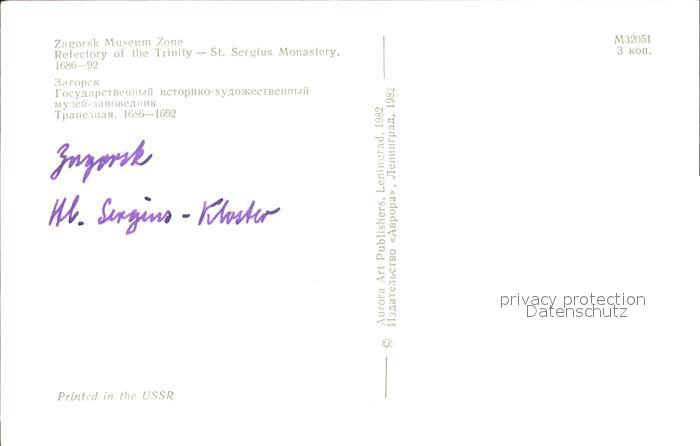 Zagorsk Museum Zone
Refectory of the Trinity — St. Sergius Monastery.
1686—92
Загорск
Государственный историко-художественный
музей-заповедник
Трапезная. 1686—1692
Zagorsk
Hl. Sergius - Kloster
Printed in the USSR
© Aurora Art Publishers, Leningrad, 1982
Издательство «Аврора», Ленинград, 1982
М32051
3 коп.
privacy protection
Datenschutz